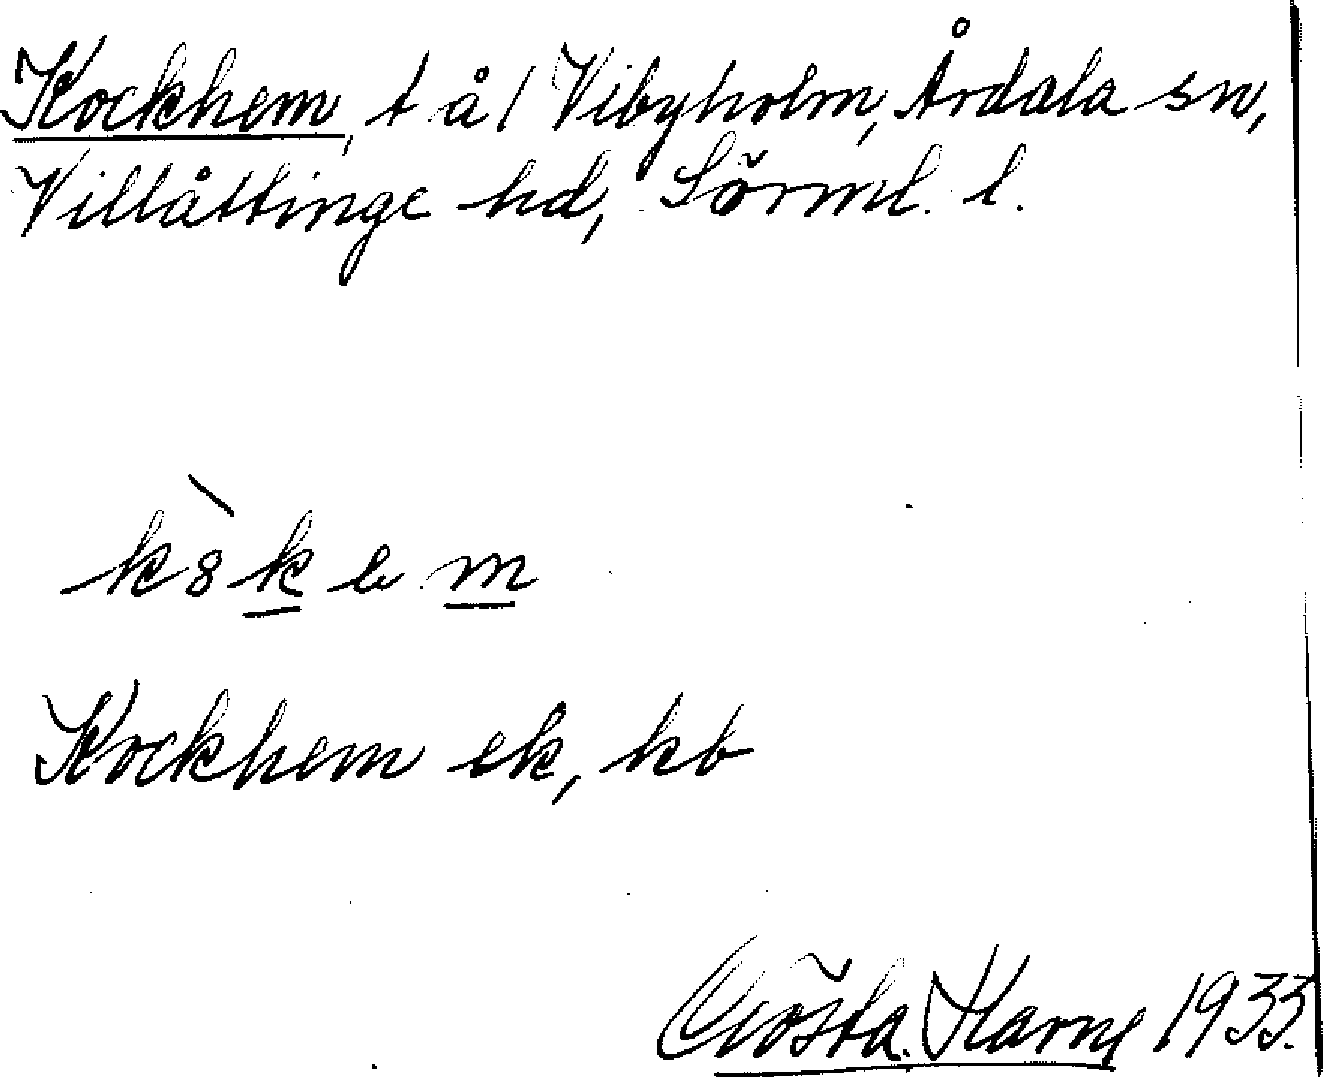 Kockhem, t å / Vibyholm, Årdala sn,
Villåttinge hd, Sörml. l.
kòkem
Kockhem ek, kb
Gösta Harne 1933.